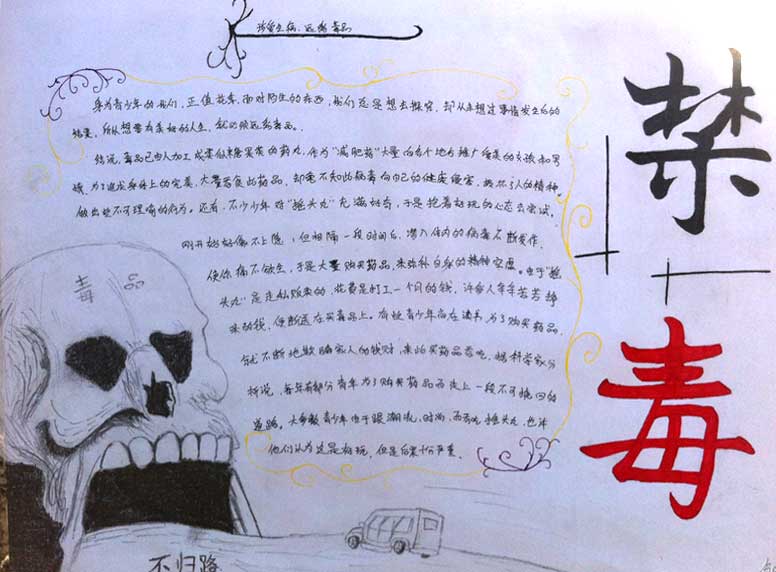 珍爱生命、远离毒品
身为青少年的我们，正值花季，面对陌生的东西，我们总是想去探究，却从未想过事情发生后的
结果，所以想要有美好的人生，就必须远离毒品。
据说，毒品已由人加工成类似来糖果类的药丸，作为"减肥药"大量向各个地方推广爱美的女孩和男
孩，为了追求身体上的完美，大量吞食此药品，却毫不知此病毒向自己的健康侵害，损坏了人的精神，
做出些不可理喻的行为。还有，不少少年对"摇头丸"充满好奇，于是抱着好玩的心态去尝试。
刚开始好像不上瘾，但相隔一段时间后，潜入体内的病毒不断发作，
使你痛不欲生，于是大量购买药品，来弥补自身的精神空虚。由于"摇
头丸"是走私贩来的，花费是打工一个月的钱，许多人辛辛苦苦挣
来的钱，便断送在买毒品上。有些青少年尚在读书，为了购买药品，
就不断地欺瞒家人的钱财，来此买药品吞吃，据科学家分
析说，每年有部分青年为了购买药品而走上一段不可挽回的
道路，大多数青少年由于跟潮流，时尚，而去吃摇头丸，也许
他们认为这是好玩，但是后果十分严重。
禁
毒
毒 品
不归路